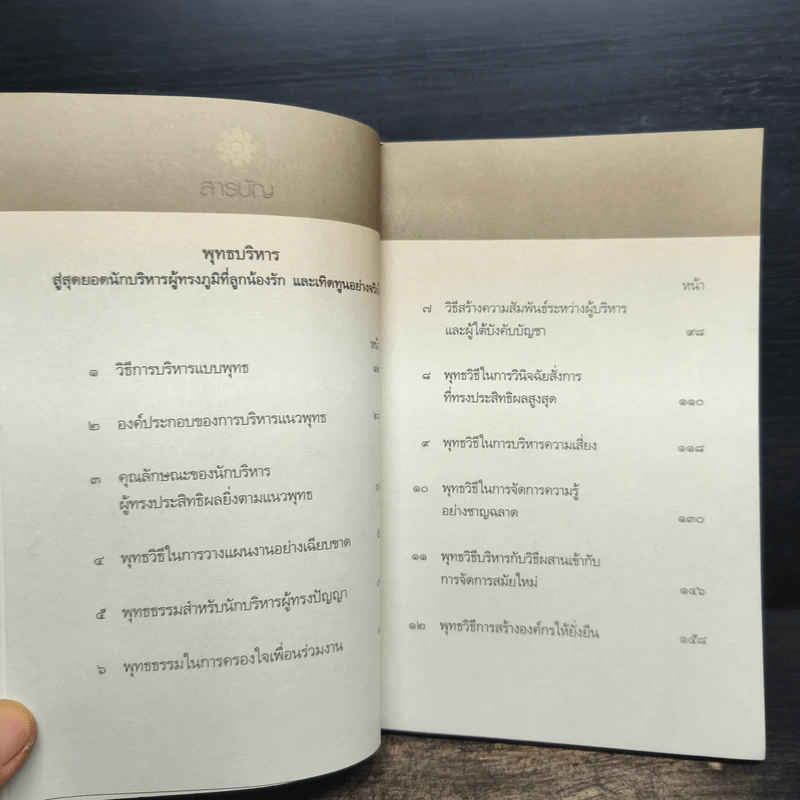 สารบัญ
พุทธบริหาร
สู่สุดยอดนักบริหารผู้ทรงภูมิที่ลูกน้องรัก และเทิดทูนอย่าง
๑ วิธีการบริหารแบบพุทธ
๒ องค์ประกอบของการบริหารแนวพุทธ
๓ คุณลักษณะของนักบริหาร
ผู้ทรงประสิทธิผลยิ่งตามแนวพุทธ
๔ พุทธวิธีในการวางแผนงานอย่างเฉียบขาด
๕ พุทธธรรมสำหรับนักบริหารผู้ทรงปัญญา
๖ พุทธธรรมในการครองใจเพื่อนร่วมงาน
หน้า
๗ วิธีสร้างความสัมพันธ์ระหว่างผู้บริหาร
และผู้ใต้บังคับบัญชา ๙๘
๘ พุทธวิธีในการวินิจฉัยสั่งการ
ที่ทรงประสิทธิผลสูงสุด ๑๑๐
๙ พุทธวิธีในการบริหารความเสี่ยง ๑๑๘
๑๐ พุทธวิธีในการจัดการความรู้
อย่างชาญฉลาด ๑๓๐
๑๑ พุทธวิธีบริหารกับวิธีผสานเข้ากับ
การจัดการสมัยใหม่ ๑๔๖
๑๒ พุทธวิธีการสร้างองค์กรให้ยั่งยืน ๑๕๘